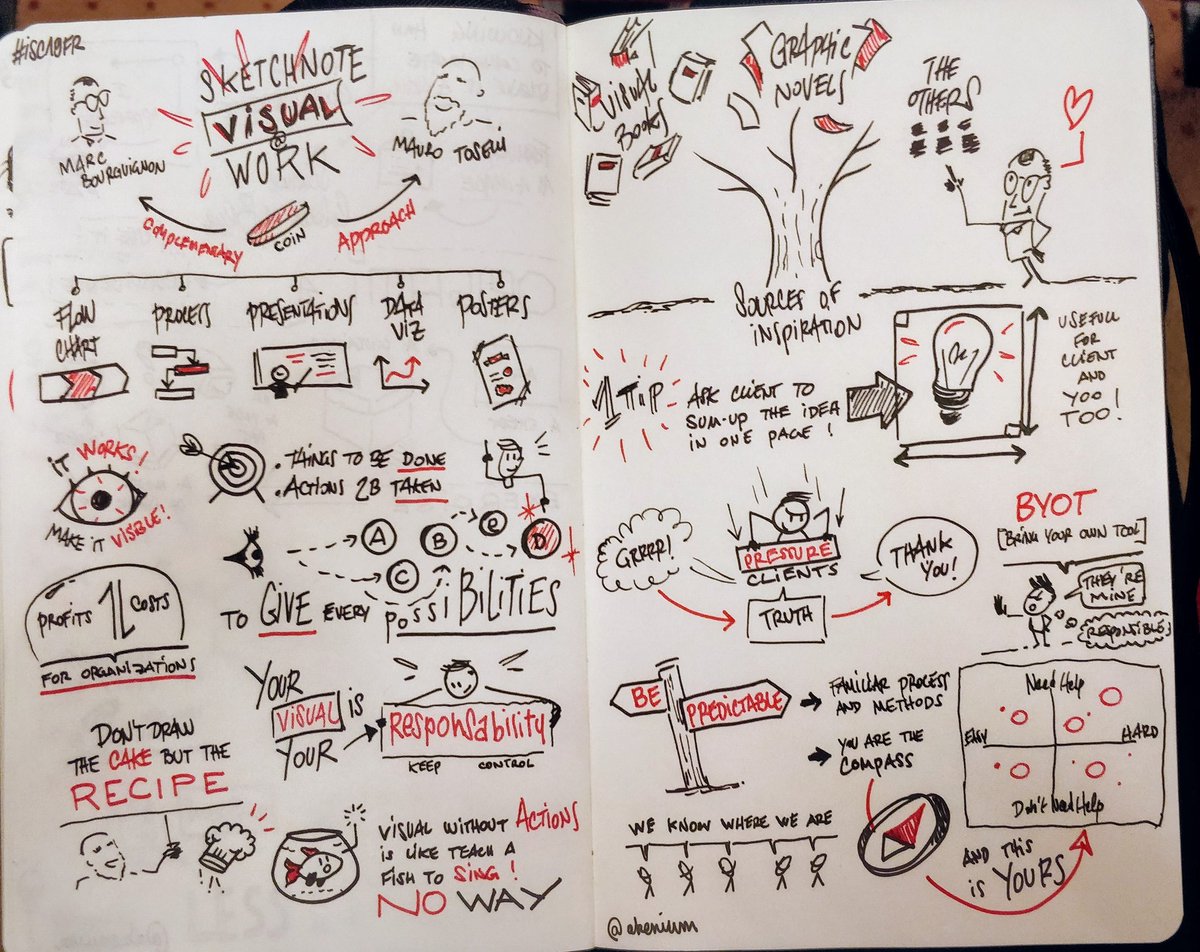 #ISC19FR
SKETCHNOTE
VISUAL
@
WORK
MARC
BOURGUIGNON
MAURO TOSELLI
COMPLEMENTARY
COIN
APPROACH
FLOW
CHART
PROCESS
PRESENTATIONS
DATA
VIZ
POSTERS
IT WORKS!
MAKE IT VISIBLE!
. THINGS TO BE DONE
. ACTIONS 2B TAKEN
A
B
C
E
D
TO GIVE EVERY POSSIBILITIES
PROFITS
COSTS
FOR ORGANIZATIONS
YOUR
VISUAL IS
YOUR
RESPONSABILITY
KEEP CONTROL
DON'T DRAW
THE CAKE BUT THE
RECIPE
VISUAL WITHOUT ACTIONS
IS LIKE TEACH A
FISH TO SING!
NO WAY
VISUAL
BOOKS
GRAPHIC
NOVELS
THE
OTHERS
SOURCES OF
INSPIRATION
1 TIP
ASK CLIENT TO
SUM-UP THE IDEA
IN ONE PAGE!
USEFULL
FOR
CLIENT
AND
YOO
TOO!
GRRRR!
PRESSURE
CLIENTS
TRUTH
THANK
YOU!
BYOT
[BRING YOUR OWN TOOL]
THEY'RE
MINE
RESPONSIBLE
BE
PREDICTABLE
FAMILIAR PROCESS
AND METHODS
YOU ARE THE
COMPASS
Need Help
EASY
HARD
Don't Need Help
WE KNOW WHERE WE ARE
AND THIS
IS YOURS
@akenium